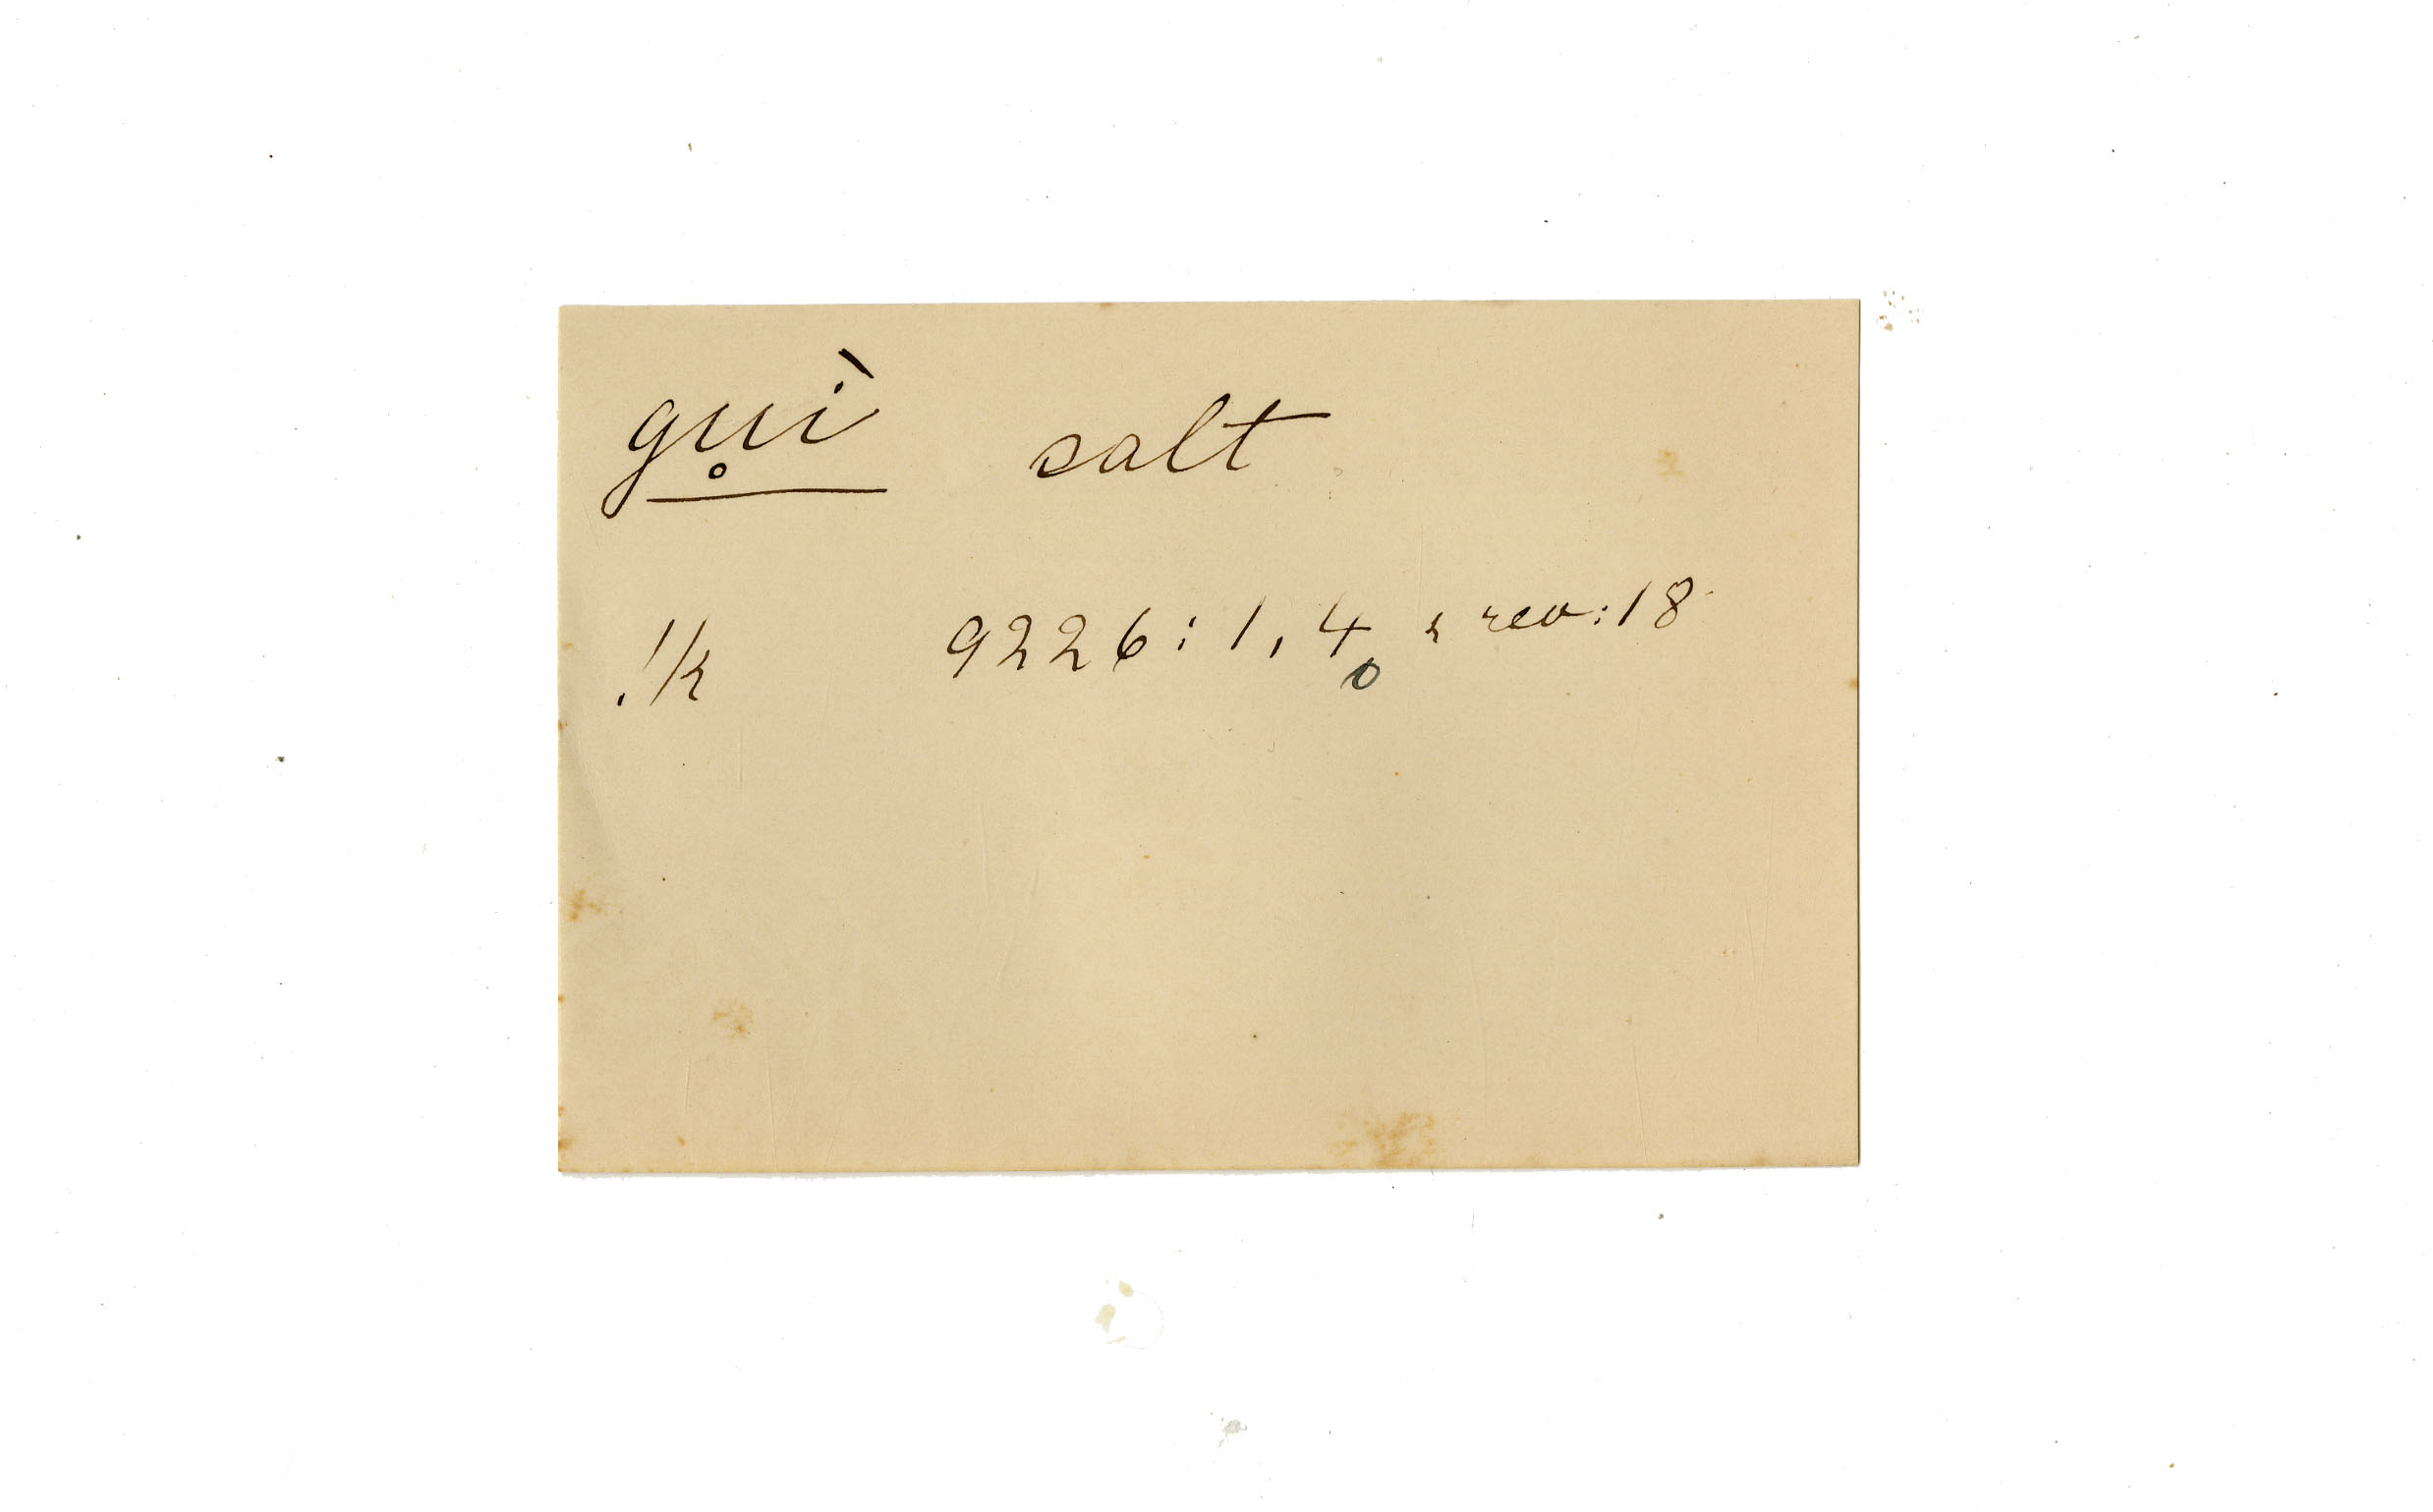 gu̥ì salt
!k 9226: 1, 4, & rev: 18